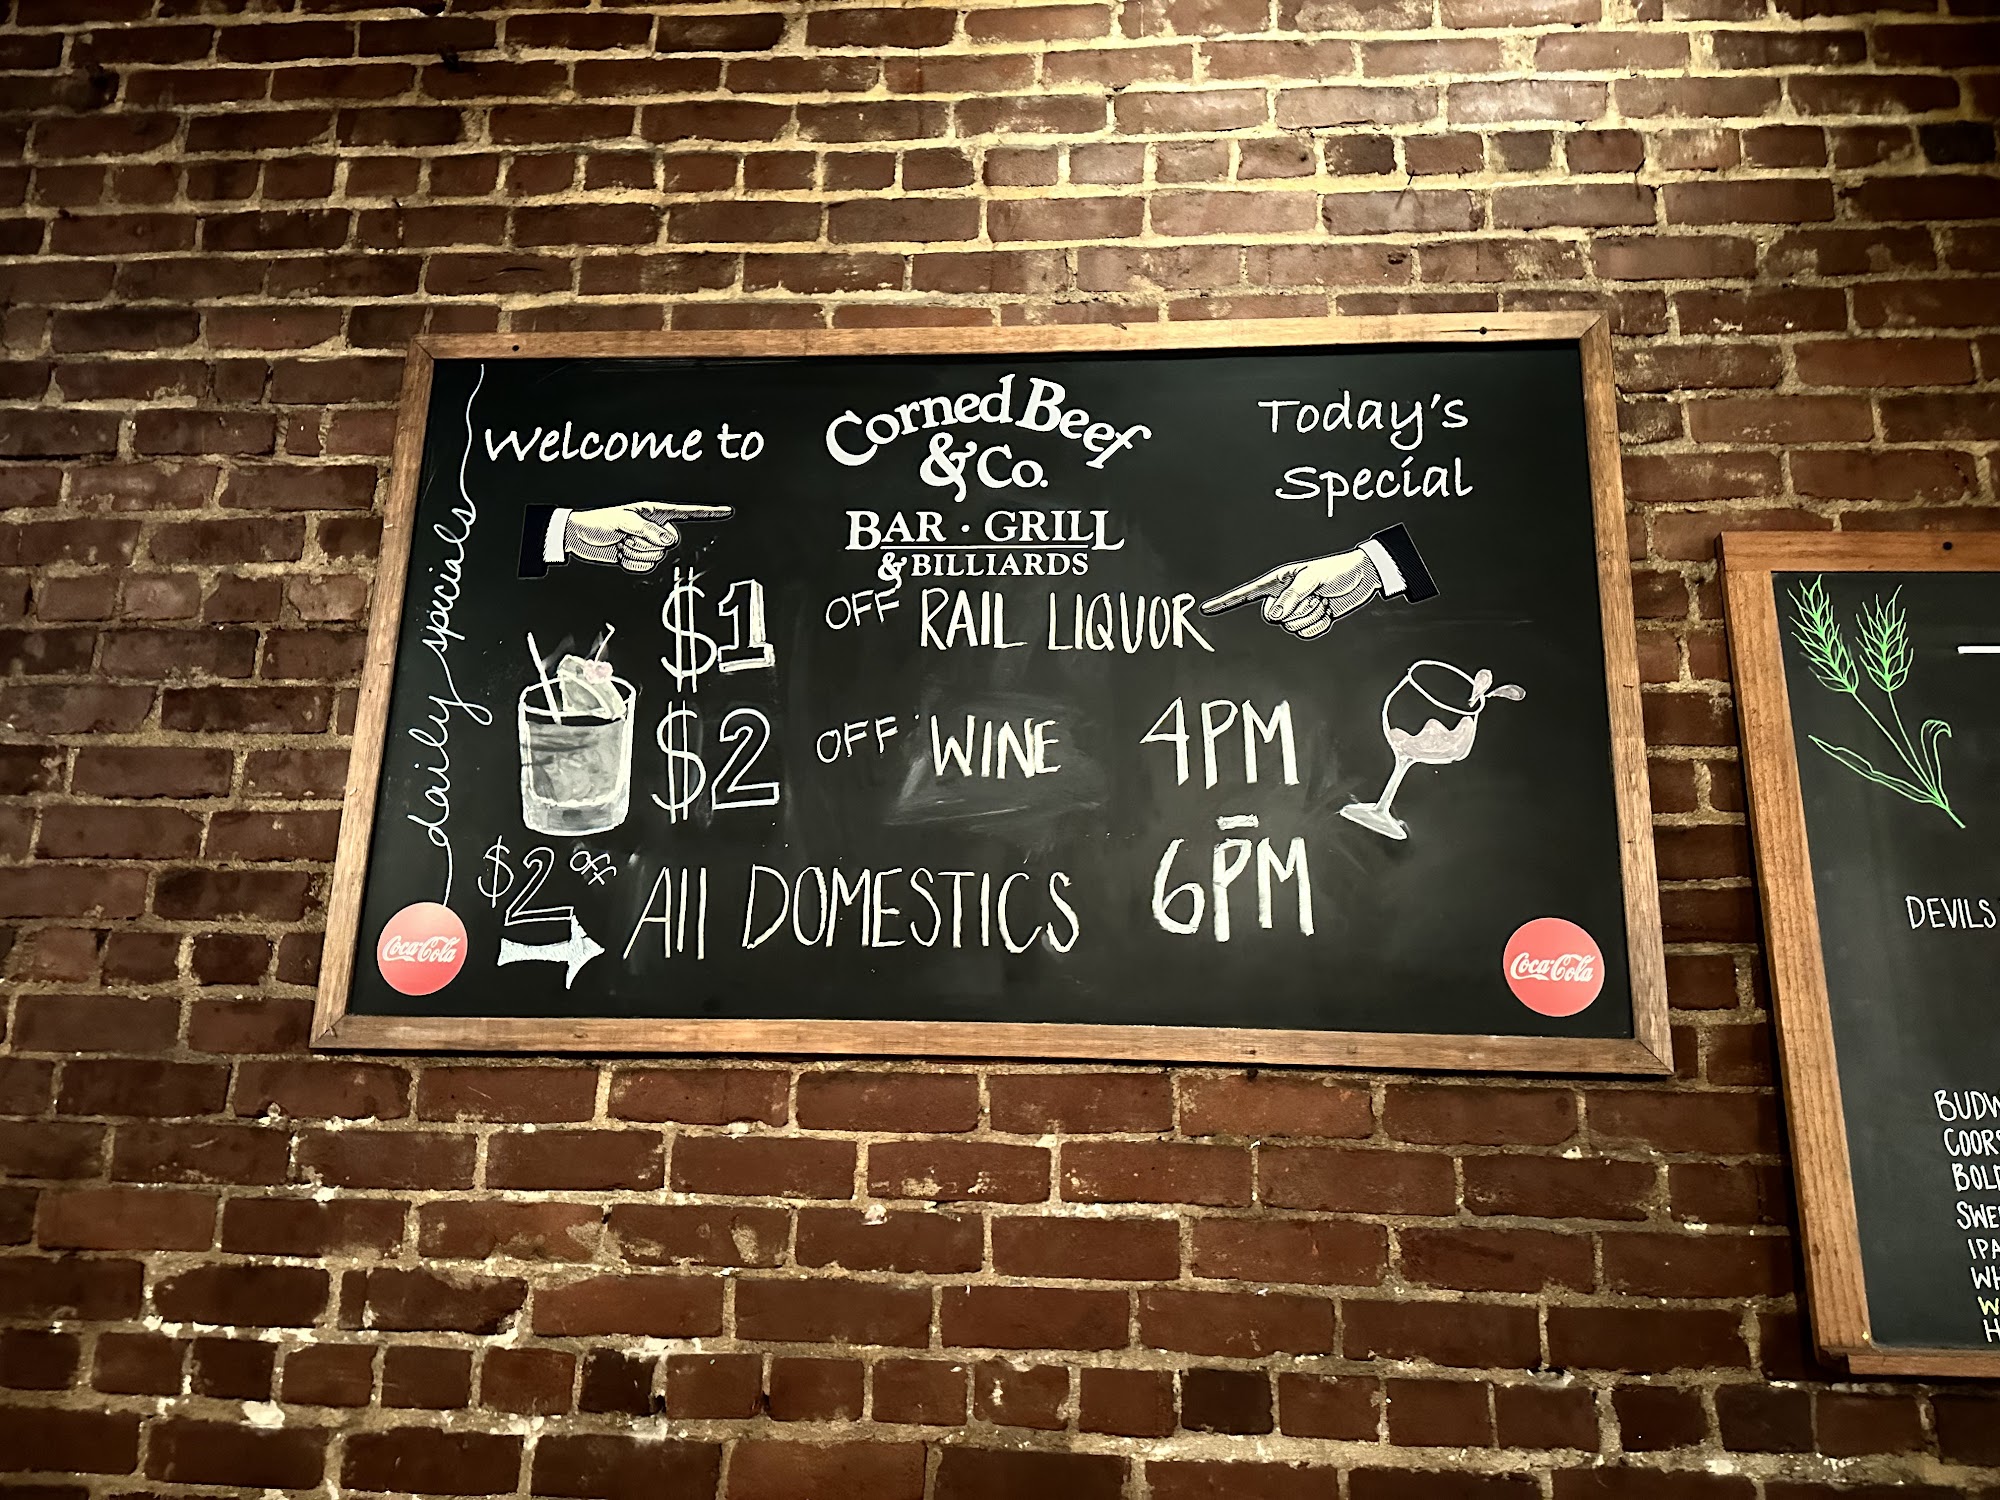 Welcome to
Corned Beef
& Co.
BAR · GRILL
& BILLIARDS
Today's
Special
daily specials
$1 OFF RAIL LIQUOR
$2 OFF WINE
4PM
-
6PM
$2 off
All DOMESTICS
Coca-Cola
Coca-Cola
DEVILS
IPA